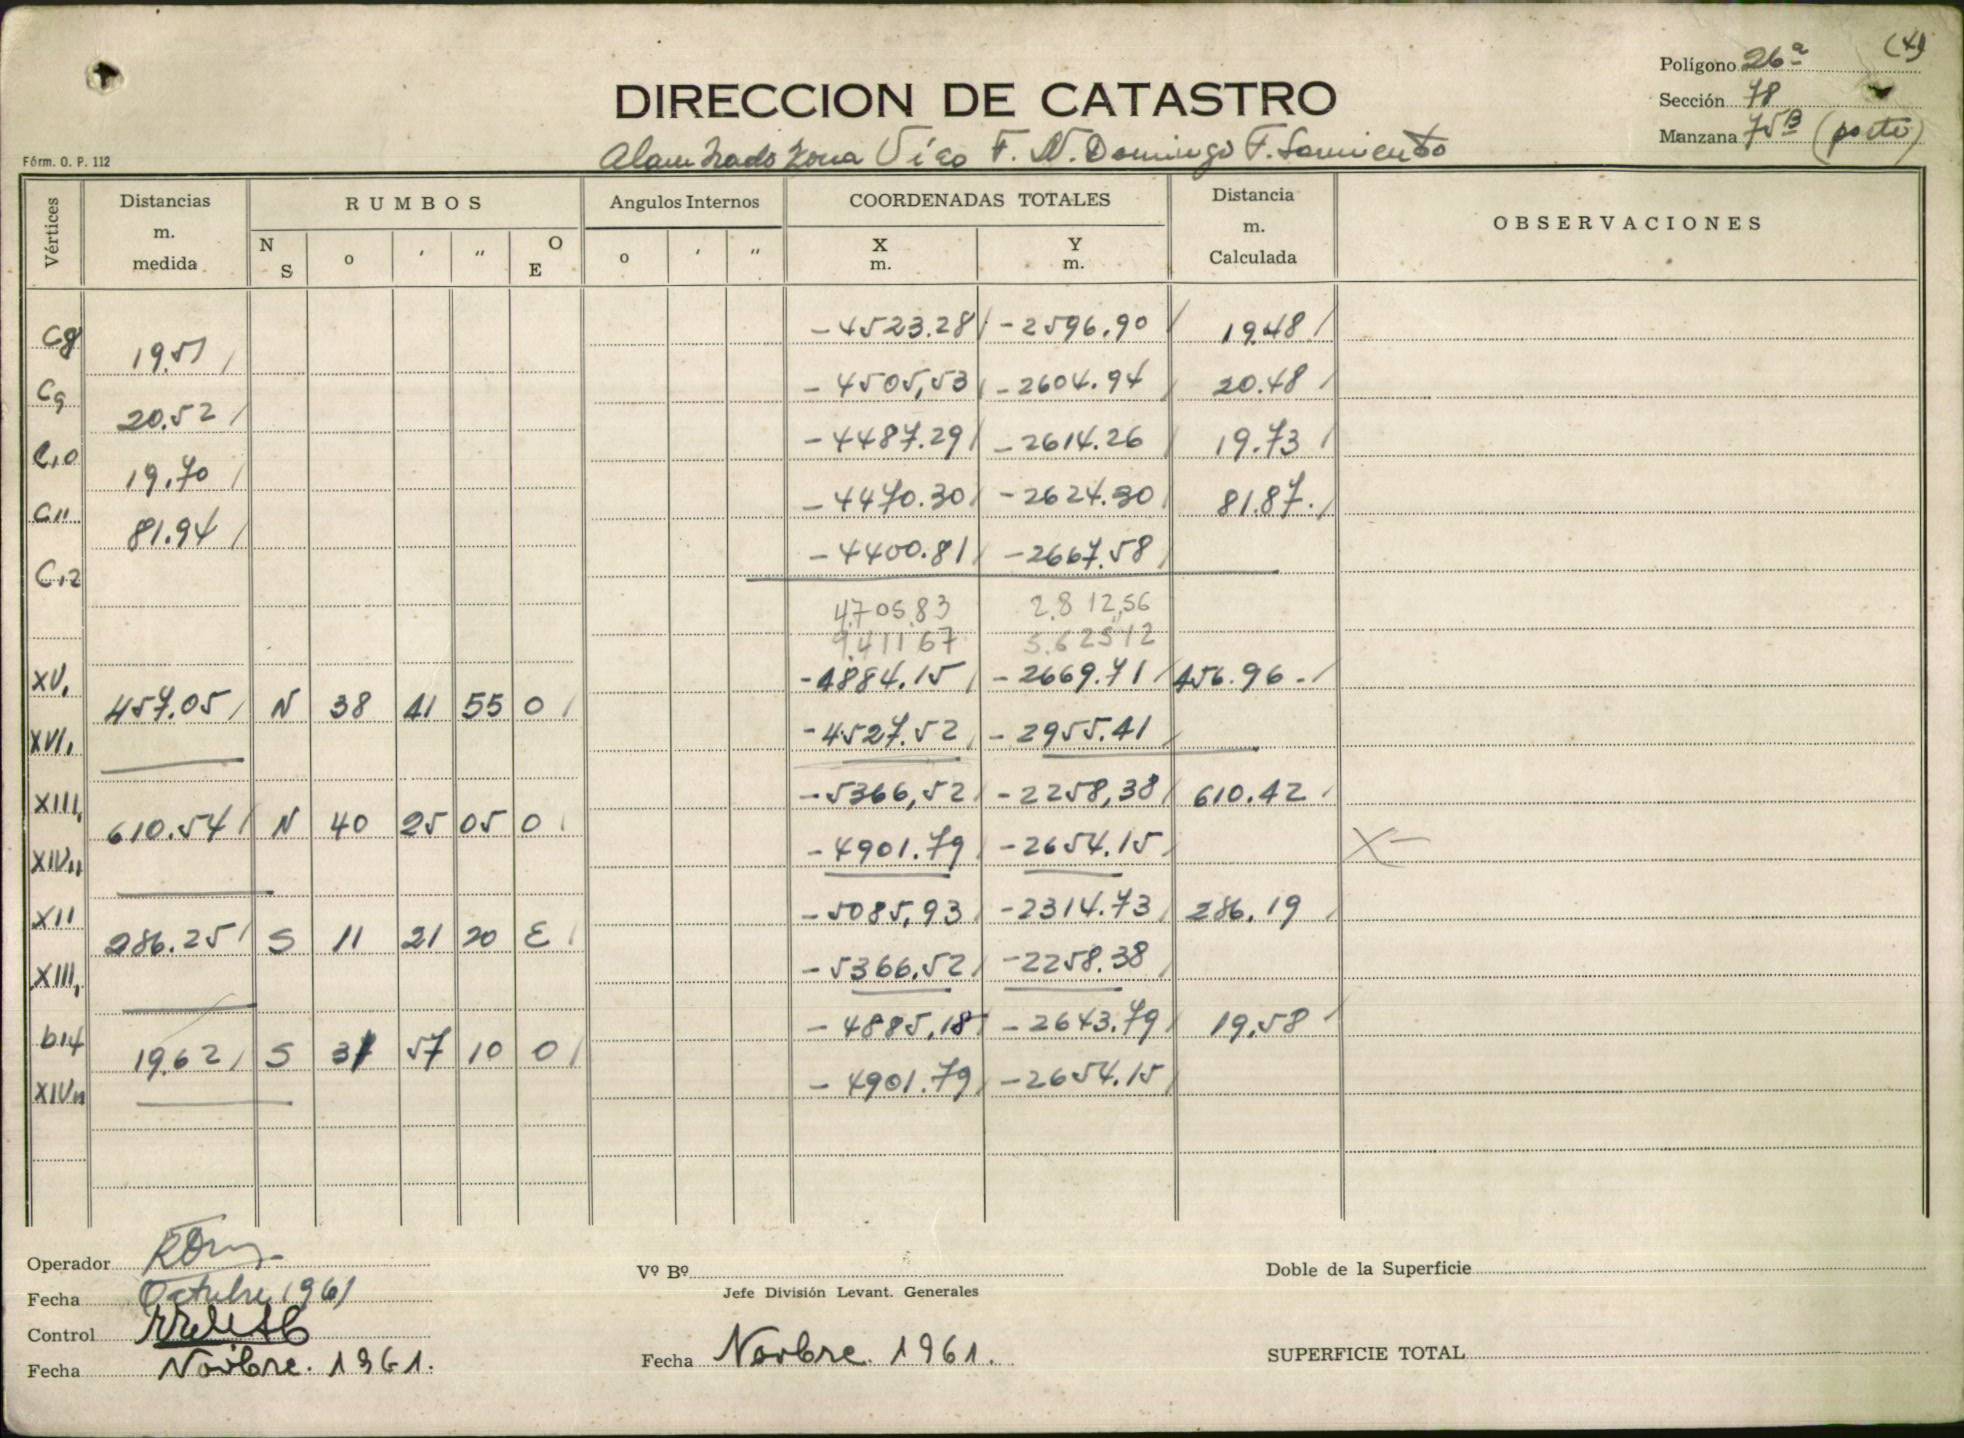 (4)
Polígono 26ª
Sección 78
Manzana 75B (parte)
DIRECCION DE CATASTRO
Alambrado zona Vías F. N. Domingo F. Sarmiento
Fórm. O. P. 112
Vértices Distancias m. medida RUMBOS Angulos Internos COORDENADAS TOTALES Distancia m. Calculada OBSERVACIONES
N S o ′ ″ O E o ′ ″ X m. Y m.
C8 -4523.28 -2596.90 19.48
19.51
C9 -4505,53 -2604.94 20.48
20.52
C10 -4487.29 -2614.26 19.73
19.70
C11 -4470.30 -2624.30 81.87.
81.94
C12 -4400.81 -2667.58
4.705,83 2.812,56
9.411 67 5.625 12
XV, -4884.15 -2669.71 456.96.
457.05 N 38 41 55 O
XVI, -4527.52 -2955.41
XIII, -5366,52 -2258,38 610.42
610.54 N 40 25 05 O
XIV,, -4901.79 -2654.15 X-
XII -5085,93 -2314.73 286.19
286.25 S 11 21 20 E
XIII, -5366.52 -2258.38
b14 -4885,18 -2643.79 19,58
19.62 S 31 57 10 O
XIV,, -4901.79 -2654.15
Operador
Fecha Octubre 1961
Control
Fecha Novbre. 1961.
Vº Bº
Jefe División Levant. Generales
Fecha Novbre. 1961.
Doble de la Superficie
SUPERFICIE TOTAL